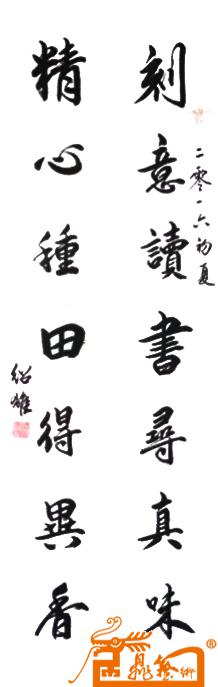 刻意讀書尋真味
二零一六初夏
精心種田得異香
紹雄